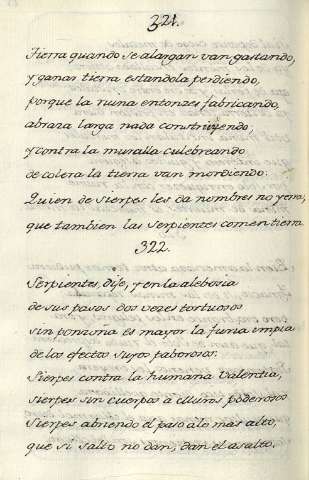 321.
Tierra quando se alargar van gastando,
y ganas tierra estandola perdiendo,
porque la ruina entonzes fabricando,
abraza larga nada construyendo,
y contra la muralla culebreando
de colera la tierra van mordiendo.
Quien de sierpes les da nombres no yerra,
que tambien las Serpientes comen tierra
322.
Serpientes dije, y en la alebosia
de sus pasos dos vezes tortuosos
sin ponzoña es mayor la furia impia
de los efectos suyos paborosos.
Sierpes contra la humana valentia,
sierpes sin cuerpos à poderosos
Sierpes abriendo el paso à lo mas alto,
que si salto no dan, dan el asalto.